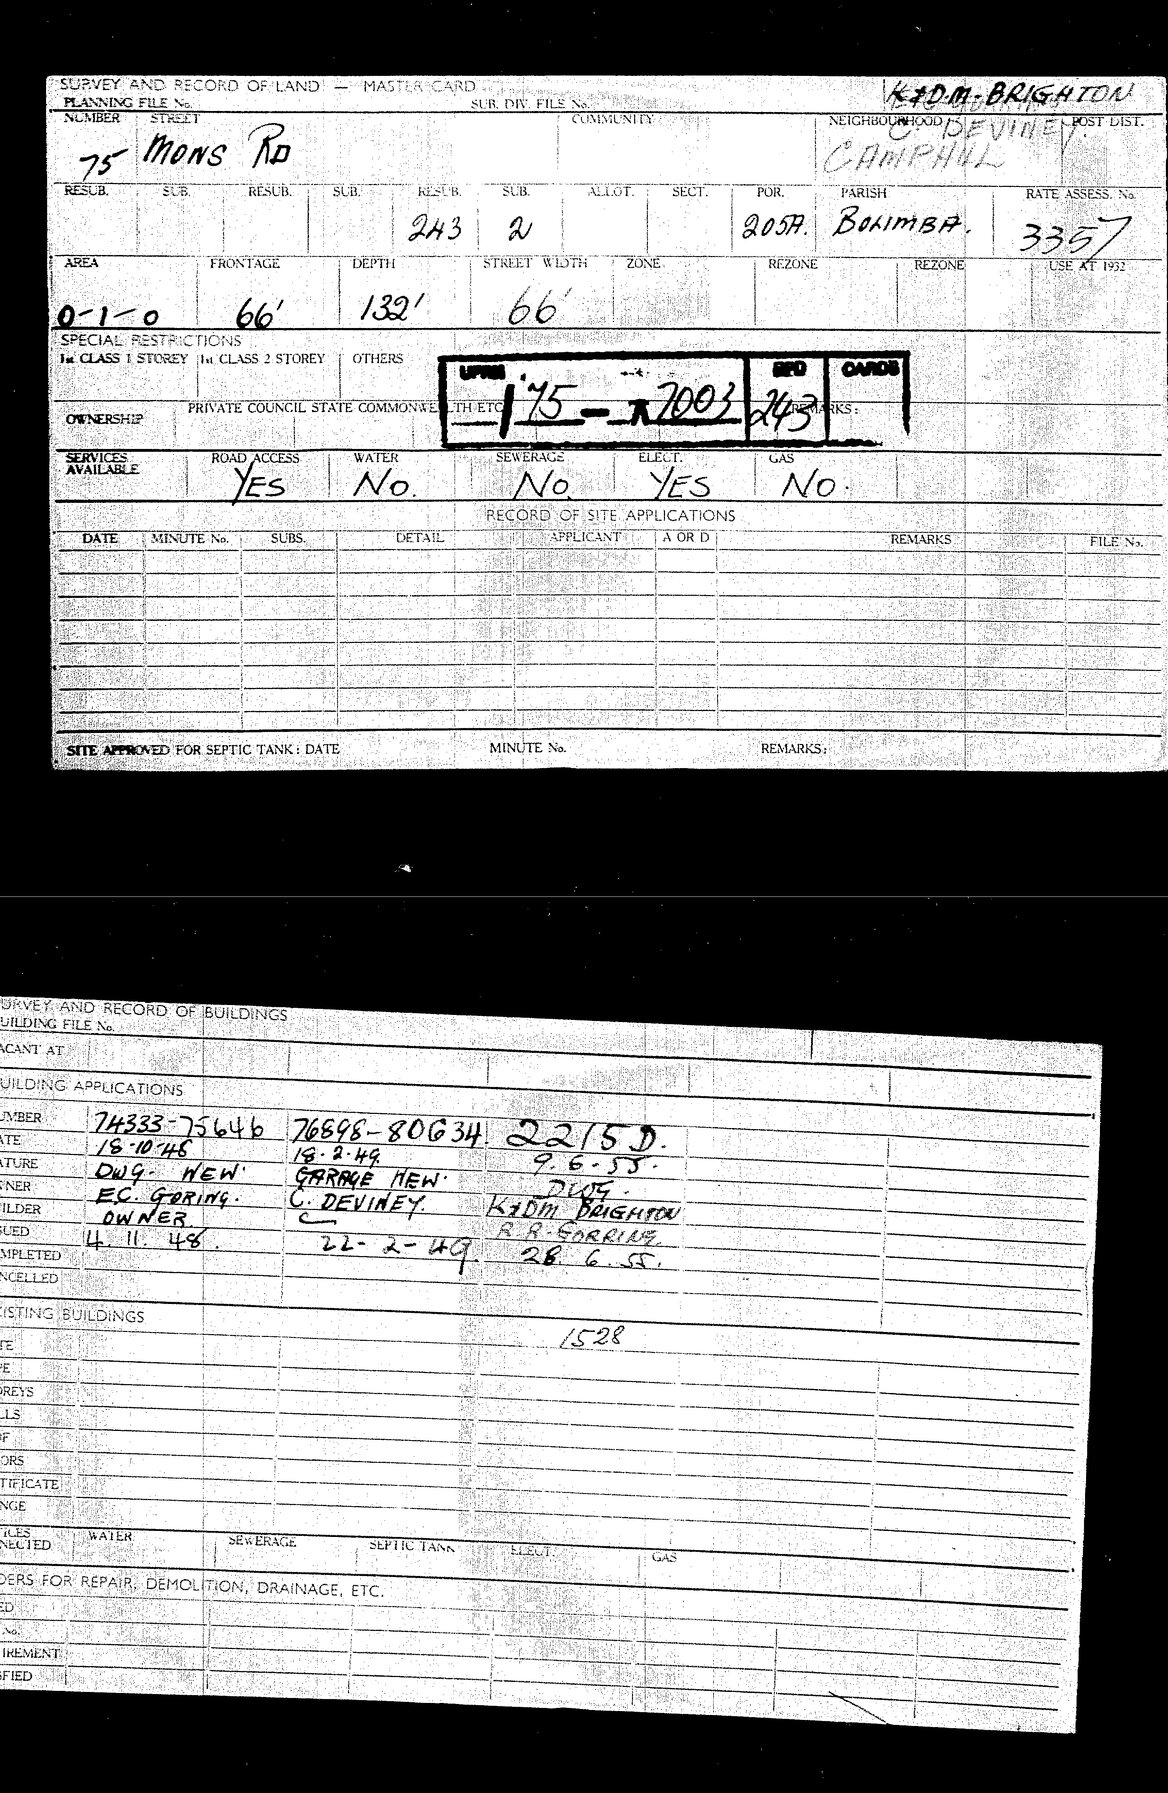 SURVEY AND RECORD OF LAND — MASTER CARD
K & D.M. BRIGHTON
PLANNING FILE No. SUB. DIV. FILE No.
NUMBER STREET COMMUNITY NEIGHBOURHOOD POST DIST.
C. DEVINEY
75 MONS RD
RESUB. SUB. RESUB. SUB. RESUB. SUB. ALLOT. SECT. POR. PARISH RATE ASSESS. No.
243 2 205A. 3357
AREA FRONTAGE DEPTH STREET WIDTH ZONE REZONE REZONE USE AT 1932
0-1-0 66' 132' 66'
SPECIAL RESTRICTIONS
1st CLASS 1 STOREY 1st CLASS 2 STOREY OTHERS
UPRN RPD CARDS
75 - 7003 243
OWNERSHIP PRIVATE COUNCIL STATE COMMONWEALTH ETC REMARKS:
SERVICES AVAILABLE ROAD ACCESS WATER SEWERAGE ELECT. GAS
YES NO. NO. YES NO.
RECORD OF SITE APPLICATIONS
DATE MINUTE No. SUBS. DETAIL APPLICANT A OR D REMARKS FILE No.
SITE APPROVED FOR SEPTIC TANK: DATE MINUTE No. REMARKS:
URVEY AND RECORD OF BUILDINGS
UILDING FILE No.
ACANT AT
UILDING APPLICATIONS
UMBER 74333-75646 76898-80634 2215D.
ATE 18-10-48 18.2.49. 9.6.55.
ATURE DWG. NEW. GARAGE NEW. DWG.
NER E.C. GORING. C. DEVINEY. K & DM BRIGHTON
ILDER OWNER R.R. GORRING.
SUED 4.11.48. 22-2-49 28.6.55.
MPLETED
NCELLED
ISTING BUILDINGS
1528
TE
PE
OREYS
LLS
OF
ORS
TIFICATE
NGE
ICES
NECTED WATER SEWERAGE SEPTIC TANK ELECT. GAS
DERS FOR REPAIR, DEMOLITION, DRAINAGE, ETC.
ED
No.
IREMENT
SFIED